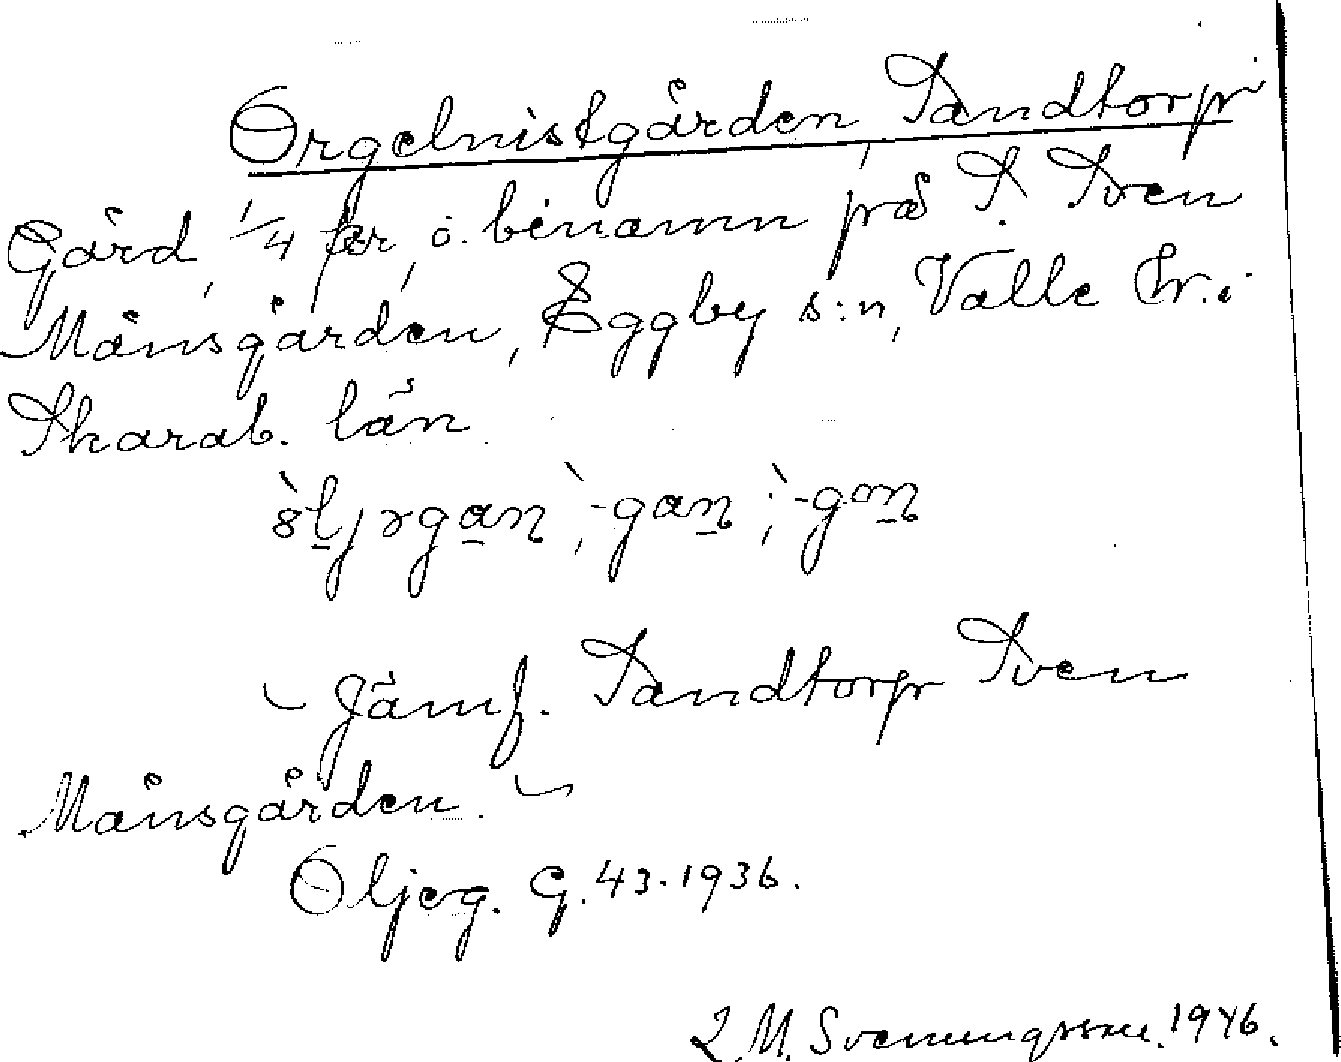 Orgelnistgården, Sandtorp
Gård, 1/4 för, o. binamn på S. Sven
Månsgården, Eggby s:n, Valle hr. i
Skarab. län.
gan; -gan; -gan
Jämf. Sandtorp Sven
Månsgården.
Oljeg. G. 43. 1936.
L. M. Svenungsson. 1946.